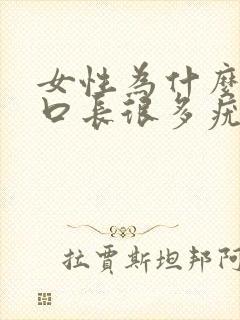 女性為什麼
口長很多疣
拉賈斯坦邦阿